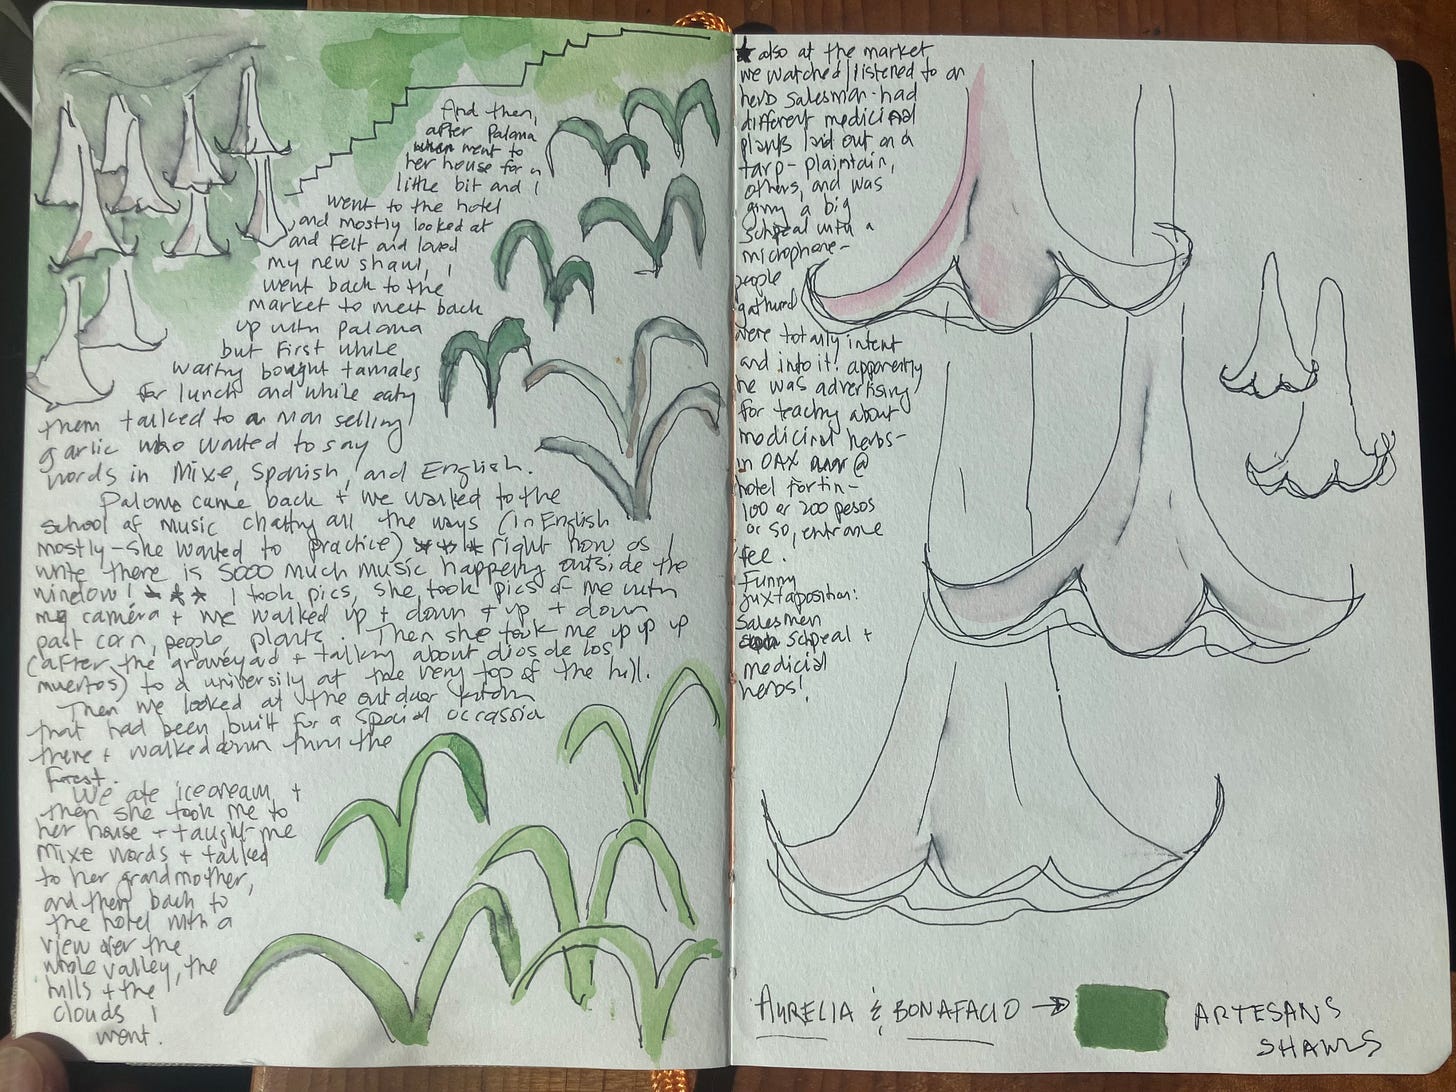 And then,
after Paloma
when went to
her house for a
little bit and I
went to the hotel
and mostly looked at
and felt and loved
my new shawl, I
went back to the
market to meet back
up with Paloma
but first while
waiting bought tamales
for lunch and while eatg
them talked to a man selling
garlic who wanted to say
words in Mixe, Spanish, and English.
Paloma came back + we walked to the
school of music chattng all the ways (in English
mostly - she wanted to practice) *** right now as I
write there is sooo much music happening outside the
window! *** I took pics, she took pics of me with
my camera + we walked up + down + up + down
past corn, people, plants. Then she took me up up up
(after the graveyard + talking about dios de los
muertos) to a university at the very top of the hill.
Then we looked at the outdoor kitchn
that had been built for a special occassion
there + walked down thru the
forest.
We ate icecream +
then she took me to
her house + taught me
mixe words + talked
to her grandmother,
and then back to
the hotel with a
view over the
whole valley, the
hills + the
clouds I
went.
★ also at the market
we watched/listened to an
herb salesman - had
different medicinal
plants laid out on a
tarp - plaintain,
others, and was
givng a big
schpeal with a
microphone -
people
gathered
were totally intent
and into it! apparently
he was advertising
for teachng about
medicinal herbs -
in OAX @
hotel fortin -
100 or 200 pesos
or 50, entrance
fee.
Funny
juxtaposition:
salesmen
schpeal +
medicial
herbs!
AURELIA & BONAFACIO → ARTESANS
SHAWLS